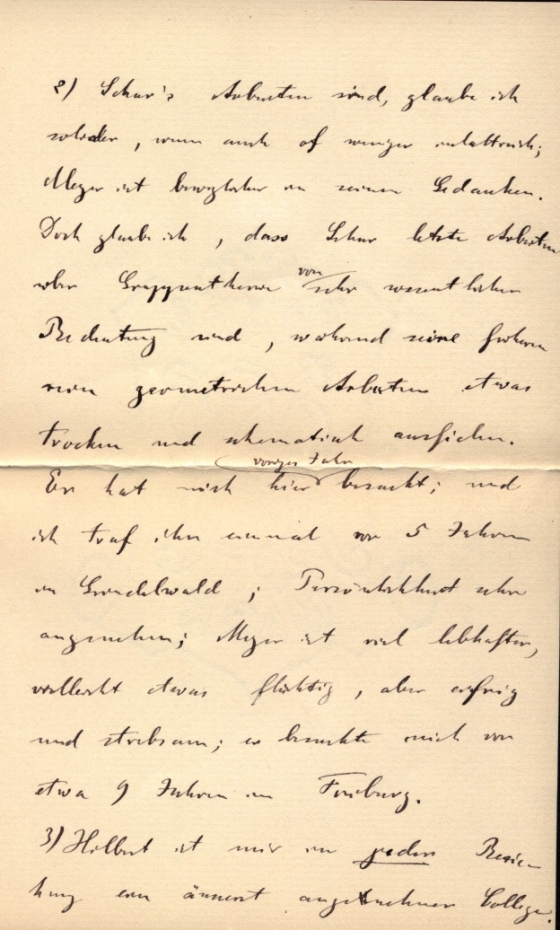 2) Schur's Arbeiten sind, glaube ich
solider, wenn auch oft weniger
Meyer ist beweglicher in seinen Gedanken.
Doch glaube ich, dass Schur letzte Arbeiten
über Gruppentheorie von sehr wesentlicher
Bedeutung sind, während seine frühern
rein geometrischen Arbeiten etwas
trocken und schematisch ausfielen.
Er hat mich voriges Jahr hier besucht; und
ich traf ihn einmal vor 5 Jahren
in Grindelwald; Persönlichkeit sehr
angenehm; Meyer ist viel lebhafter,
vielleicht etwas flüchtig, aber eifrig
und strebsam; er besuchte mich vor
etwa 9 Jahren in Freiburg.
3) Hilbert ist mir in jeder Bezie-
hung ein äusserst angenehmer College.